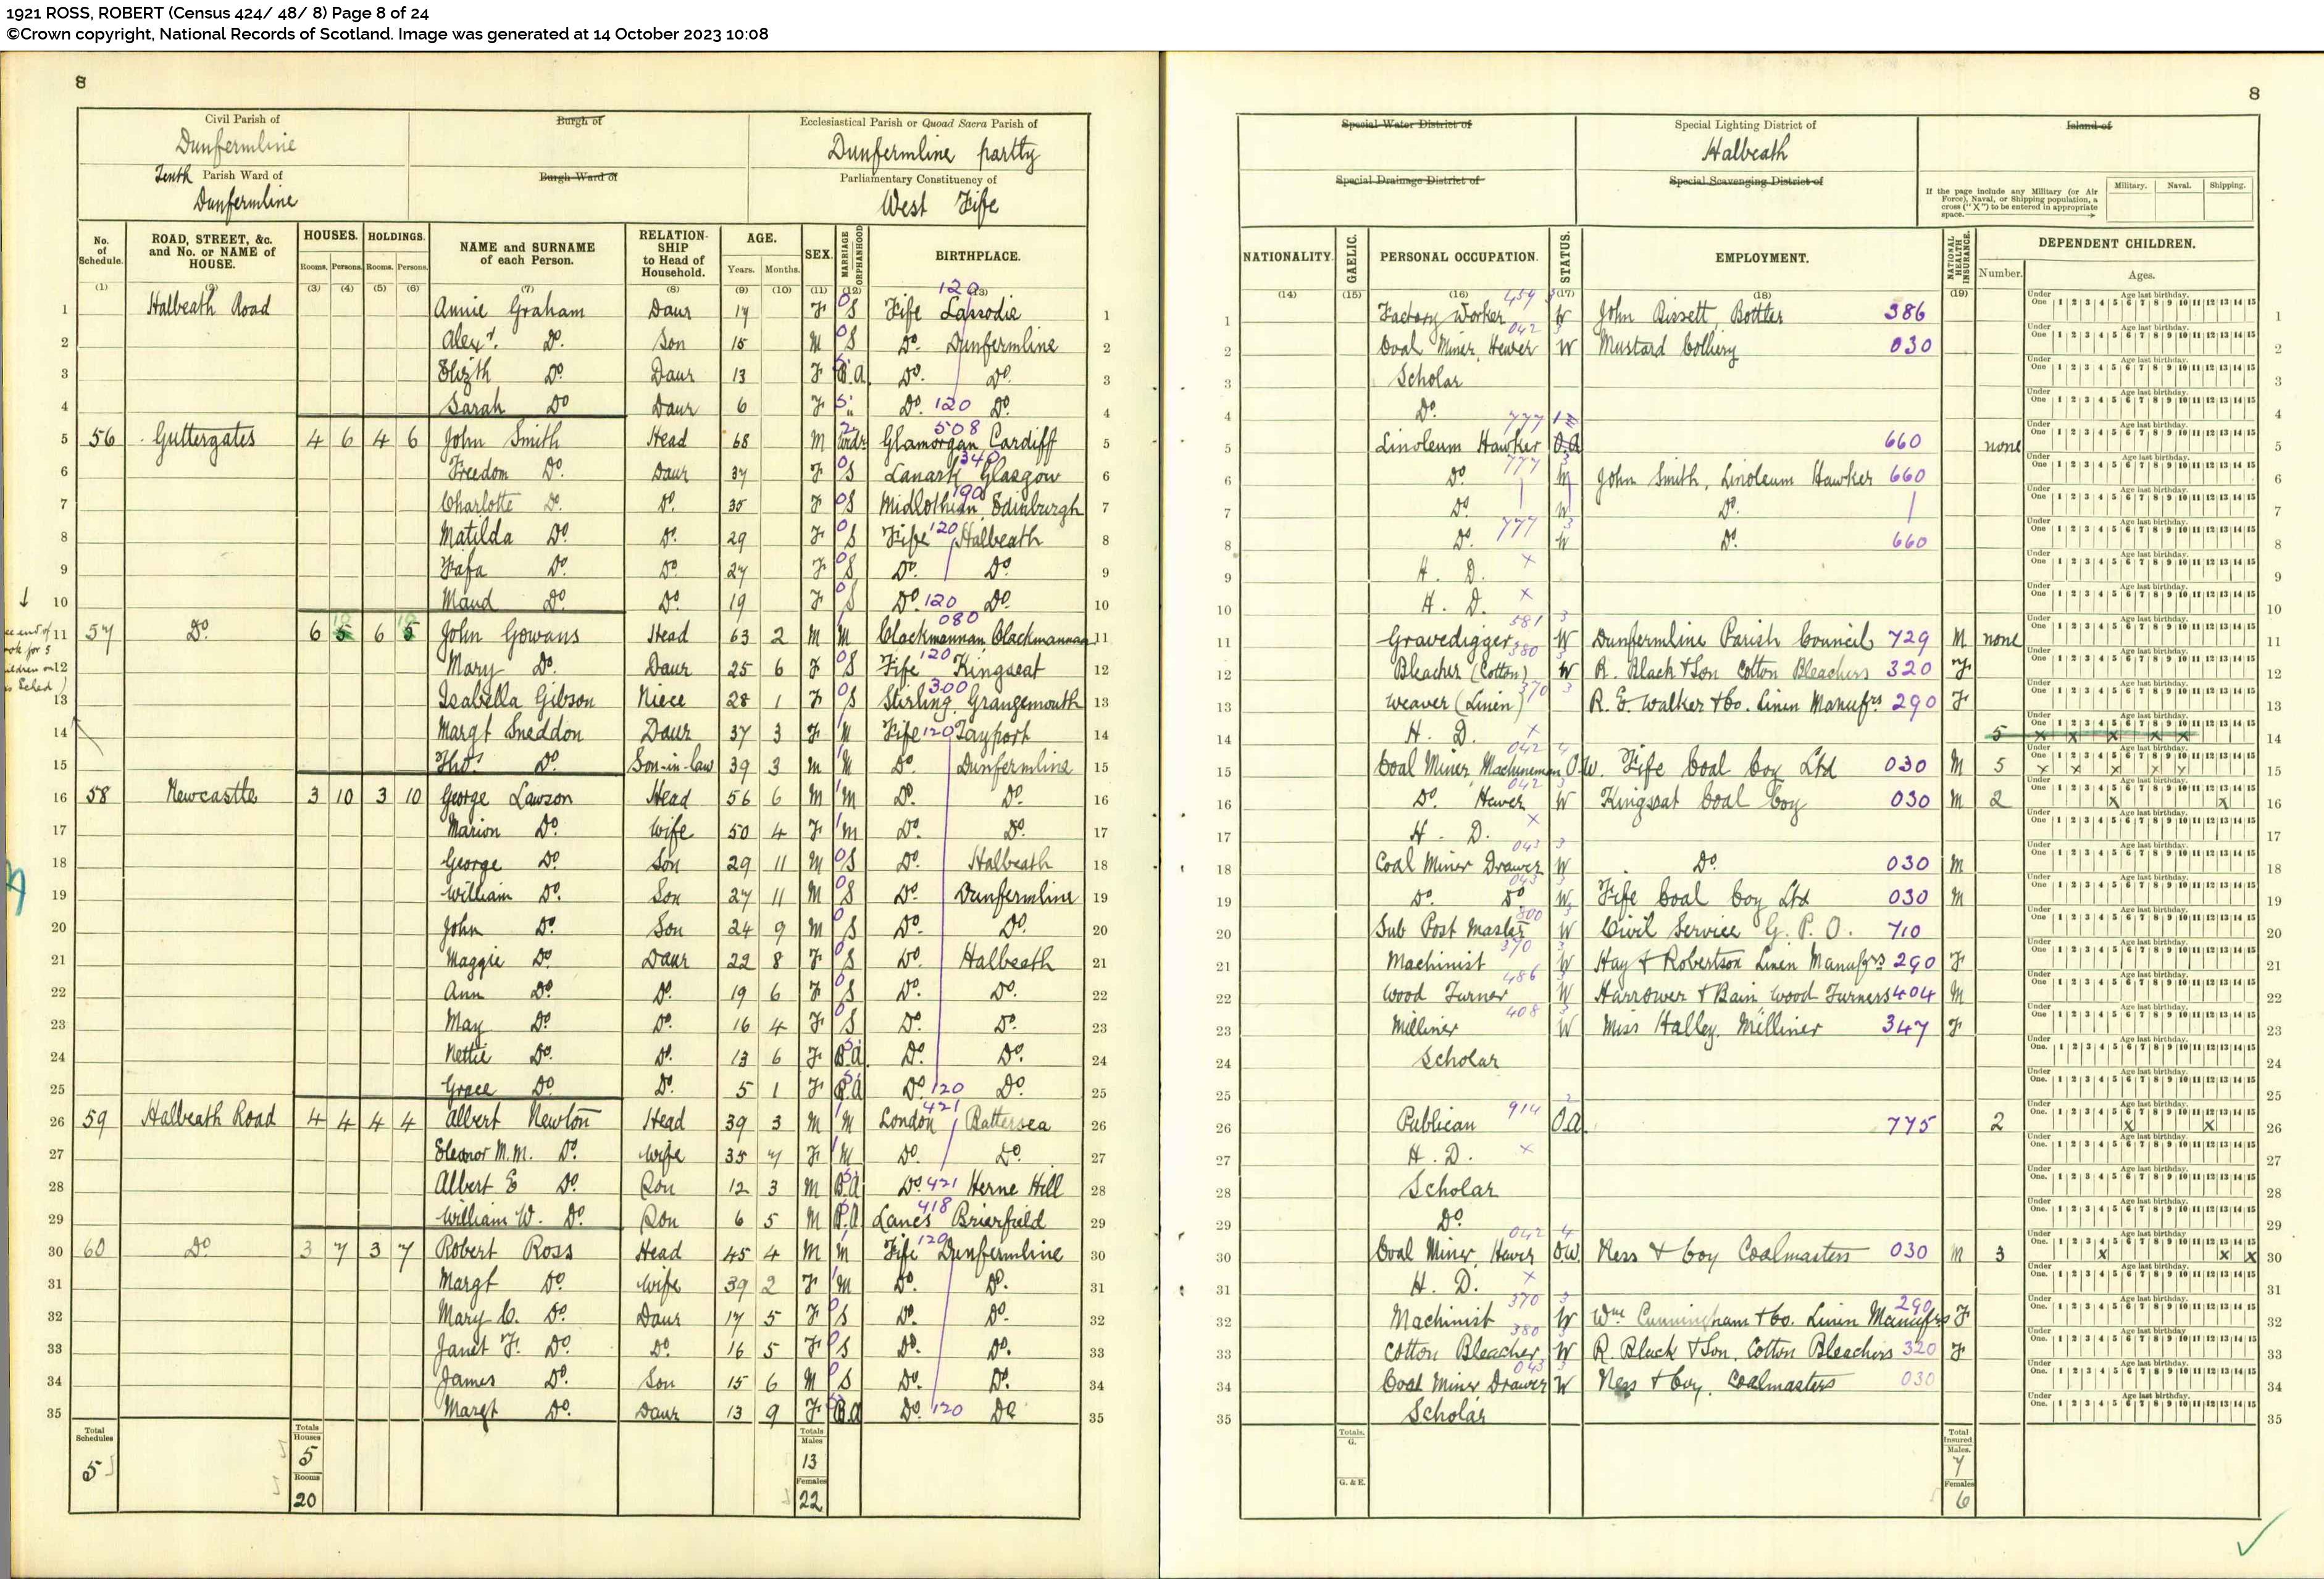 1921 ROSS, ROBERT (Census 424/ 48/ 8) Page 8 of 24
©Crown copyright, National Records of Scotland. Image was generated at 14 October 2023 10:08
8
8
Civil Parish of Burgh of Ecclesiastical Parish or Quoad Sacra Parish of
Dunfermline Dunfermline partly
Tenth Parish Ward of Burgh Ward of Parliamentary Constituency of
Dunfermline West Fife
Special Water District of Special Lighting District of Island of
Halbeath
Special Drainage District of Special Scavenging District of
If the page include any Military (or Air Force), Naval, or Shipping population, a cross ("X") to be entered in appropriate space. Military. Naval. Shipping.
No. of Schedule. ROAD, STREET, &c. and No. or NAME of HOUSE. HOUSES. HOLDINGS. NAME and SURNAME of each Person. RELATIONSHIP to Head of Household. AGE. SEX. MARRIAGE ORPHANHOOD BIRTHPLACE.
Rooms. Persons. Rooms. Persons. Years. Months.
(1) (2) (3) (4) (5) (6) (7) (8) (9) (10) (11) (12) (13)
NATIONALITY. GAELIC. PERSONAL OCCUPATION. STATUS. EMPLOYMENT. NATIONAL HEALTH INSURANCE. DEPENDENT CHILDREN.
Number. Ages.
(14) (15) (16) (17) (18) (19)
Under One Age last birthday. 1 2 3 4 5 6 7 8 9 10 11 12 13 14 15
1 Halbeath Road Annie Graham Daur 17 F S Fife Lassodie 120 1
2 Alexr. Do. Son 15 M S Do. Dunfermline 2
3 Elizth Do. Daur 13 F B.A. Do. Do. 3
4 Sarah Do Daur 6 F " Do. 120 Do. 4
5 56 Guttergates 4 6 4 6 John Smith Head 68 M Widr. Glamorgan Cardiff 508 5
6 Freedom Do. Daur 37 F S Lanark Glasgow 340 6
7 Charlotte Do. Do. 35 F S Midlothian Edinburgh 190 7
8 Matilda Do. Do. 29 F S Fife 120 Halbeath 8
9 Do. Do. 27 F S Do. Do. 9
10 Maud Do. Do. 19 F S Do. 120 Do. 10
11 57 Do. 6 5 6 5 John Gowans Head 63 2 M M Clackmannan Clackmannan 080 11
12 Mary Do. Daur 25 6 F S Fife 120 Kingseat 12
13 Isabella Gibson Niece 28 1 F S Stirling Grangemouth 300 13
14 Margt Sneddon Daur 37 3 F M Fife 120 Tayport 14
15 Thos. Do. Son-in-law 39 3 M M Do. Dunfermline 15
16 58 Newcastle 3 10 3 10 George Lawson Head 56 6 M M Do. Do. 16
17 Marion Do. Wife 50 4 F M Do. Do. 17
18 George Do. Son 29 11 M S Do. Halbeath 18
19 William Do. Son 27 11 M S Do. Dunfermline 19
20 John Do. Son 24 9 M S Do. Do. 20
21 Maggie Do. Daur 22 8 F S Do. Halbeath 21
22 Ann Do. Do. 19 6 F S Do. Do. 22
23 May Do. Do. 16 4 F S Do. Do. 23
24 Nettie Do. Do. 13 6 F B.A. Do. Do. 24
25 Grace Do. Do. 5 1 F B.A Do. 120 Do. 25
26 59 Halbeath Road 4 4 4 4 Albert Newton Head 39 3 M M London Battersea 421 26
27 Eleanor M.M. Do. Wife 35 7 F M Do. Do. 27
28 Albert E Do. Son 12 3 M B.A Do. 421 Herne Hill 28
29 William W. Do. Son 6 5 M B.A Lancs Brierfield 418 29
30 60 Do 3 7 3 7 Robert Ross Head 45 4 M M Fife Dunfermline 120 30
31 Margt Do. Wife 39 2 F M Do. Do. 31
32 Mary C. Do. Daur 17 5 F S Do. Do. 32
33 Janet F. Do. Do. 16 5 F S Do. Do. 33
34 James Do. Son 15 6 M S Do. Do. 34
35 Margt Do. Daur 13 9 F B.A Do. 120 Do 35
Total Schedules 5 Totals Houses 5 Rooms 20 Totals Males 13 Females 22
1 Factory Worker 459 W John Bissett Bottler 386 1
2 Coal Miner, Hewer 042 W Mustard Colliery 030 2
3 Scholar 3
4 Do. 4
5 Linoleum Hawker 777 O.A 660 none 5
6 Do 777 W John Smith, Linoleum Hawker 660 6
7 Do. W Do. 7
8 Do. 777 W Do. 660 8
9 H. D. x 9
10 H. D. x 10
11 Gravedigger 581 W Dunfermline Parish Council 729 M none 11
12 Bleacher (Cotton) 380 W R. Black & Son Cotton Bleachers 320 F 12
13 Weaver (Linen) 370 R. E. Walker & Co. Linen Manufrs 290 F 13
14 H. D. x 5 14
15 Coal Miner Machineman 042 O.W. Fife Coal Coy Ltd 030 M 5 15
16 Do. Hewer 042 W Kingseat Coal Coy 030 M 2 16
17 H. D. x 17
18 Coal Miner Drawer 043 W Do. 030 M 18
19 Do. Do 043 W Fife Coal Coy Ltd 030 M 19
20 Sub Post Master 800 W Civil Service G. P. O. 710 20
21 Machinist 370 W Hay & Robertson Linen Manufrs 290 F 21
22 Wood Turner 486 W Harrower & Bain Wood Turners 404 M 22
23 Milliner 408 W Miss Halley, Milliner 347 F 23
24 Scholar 24
25 25
26 Publican 914 O.A. 775 2 26
27 H. D. x 27
28 Scholar 28
29 Do. 29
30 Coal Miner, Hewer 042 O.W. Ness & Coy Coalmasters 030 M 3 30
31 H. D. x 31
32 Machinist 370 W Wm Cunningham & Co. Linen Manufrs 290 F 32
33 Cotton Bleacher 380 W R. Black & Son, Cotton Bleachers 320 F 33
34 Coal Miner Drawer 043 W Ness & Coy, Coalmasters 030 34
35 Scholar 35
Totals. G. G. & E. Total Insured. Males. 7 Females 6